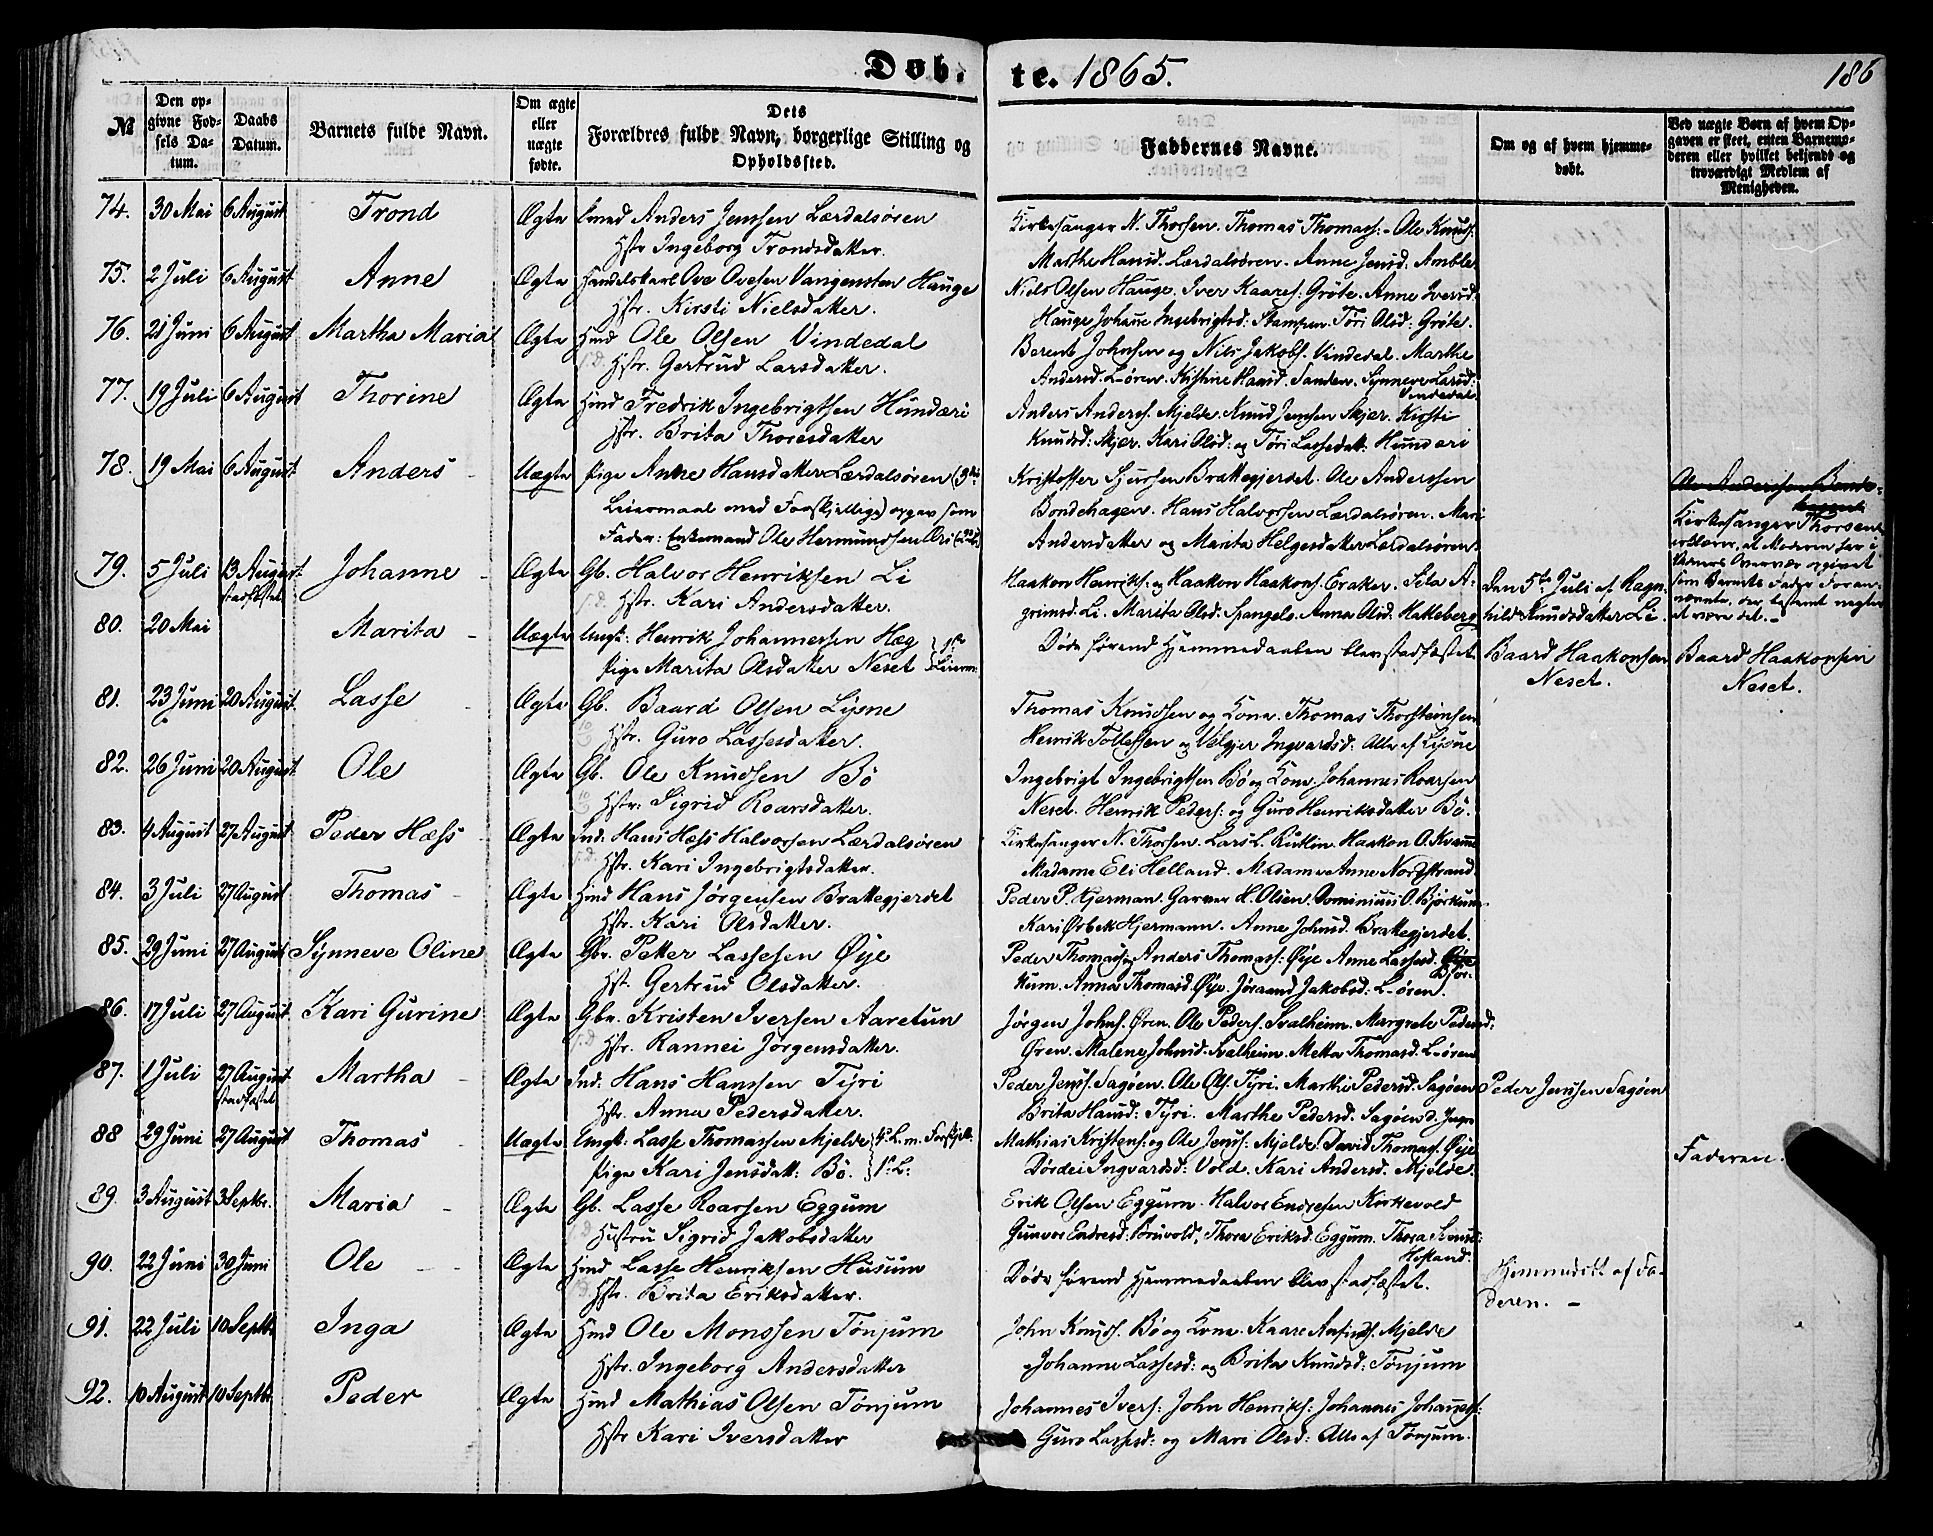 Døb-te. 1865.
186
№
Den opgivne Fødsels Datum.
Daabs Datum.
Barnets fulde Navn.
Om ægte eller uægte fødte.
Dets Forældres fulde Navn, borgerlige Stilling og Opholdssted.
Faddernes Navne.
Om og af hvem hjemmedøbt.
Ved uægte Børn af hvem Opgaven er skeet, enten Barnemoderen eller hvilket bekjendt og troværdigt Medlem af Menigheden.
74. 30 Mai 6 August Trond Ægte Smed Anders Jensen Lærdalsøren
Hstr Ingeborg Trondsdatter.
Kirkesanger N. Thorsen. Thomas Thomass:- Ole Knuds:
Marthe Hansd. Lærdalsøren. Anne Jensd: Amble.
75. 2 Juli 6 August Anne Ægte Handelskarl Ove Ovesen Vangensten Hauge
Hstr. Kirsti Nielsdatter.
Niels Olsen Hauge. Iver Kaares: Grøte. Anne Iversd:
Hauge Johanne Ingebrigtsd: Stampen. Tøri Olsd: Grøte.
76. 21 Juni 6 August Martha Maria Ægte Hmd Ole Olsen Vindedal
Hstr. Gertrud Larsdatter.
Berent Johnsen og Nils Jakobs. Vindedal. Marthe
Andersd. L-ören. Kistine Hansd. Sanden. Synneve Larsd:
Vindedal.
77. 19 Juli 6 August Thorine Ægte Hmd Fredrik Ingebrigtsen Hunderi
Hstr. Brita Thoresdatter
Anders Anders. Mjelde. Knud Jensen Skjer. Kirsti
Knudsd: Skjer. Kari Olsd: og Tøri Lassedatt: Hunderi
78. 19 Mai 6 August Anders Uægte Pige Anne Hansdatter Lærdalsøren (3die
Leiermaal med Forskjellige) opgav som
Fader: Enkemand Ole Hermundsen Øri
Kristoffer Sjursen Brattegjerdet. Ole Anderssen
Bondehagen. Hans Halvorsen Lærdalsøren. Mari
Andersdatter og Marita Helgesdatter Lærdalsøren.
Ole Andersen Bonde-
hagen
Kirkesanger Thorsen
erklærer, at Moderen har i
Vidners Overvær opgivet
som Barnets Fader Foran-
nævnte, der bestemt negter
at være det.-
79. 5 Juli 13 August stadfæstet Johanne Ægte Gb. Halvor Henriksen Li
Hstr. Kari Andersdatter.
Haakon Henriks: og Haakon Haakons. Eraker. Sila A-
grimsd: Li. Marita Olsd: Spangelo. Anna Olsd: Hatleberg
Den 5te Juli af Ragn-
hild Knudsdatter Li.
80. 20 Mai Marita Uægte Ungk: Henrik Johannessen Hæg
Pige Marita Olsdatter Neset } 1ste Leierm:
Døde førend Hjemmedaaben blev stadfæstet
Baard Haakonsen Neset.
Baard Haakonsen Neset.
81. 23 Juni 20 August. Lasse Ægte Gb. Baard Olsen Lysne
Hstr. Guro Lassesdatter.
Thomas Knudsen og Kone. Thomas Thorsteinsen
Henrik Tollefsen og Vélgjer Ingvardsd: Alle af Lysne
82. 26 Juni 20 August. Ole Ægte Gb. Ole Knudsen Bö
Hstr: Sigrid Roarsdatter.
Ingebrigt Ingebrigtsen Bö og Kone. Johannes Roarsen
Neset. Henrik Peders: og Guro Henriksdatter Bö.
83. 4 August 27 August Peder Hæss Ægte Ind. Hans Hæss Halvorsen Lærdalsören
Hstr. Kari Ingebrigtsdatter.
Kirkesanger N. Thorsen. Lars L. Rütlin. Haakon O. Kvamme
Madame Eli Helland. Madame Anne Nordstrand.
84. 3 Juli 27 August Thomas Ægte Hmd Hans Jørgensen Brattegjerdet
Hstr. Kari Olsdatter.
Peder P. Hjerman. Garver H. Olsen. Dominicus O. Bjørkum
Kari Ørbek Hjermann. Anne Johnsd. Brattegjerdet.
85. 29 Juni 27 August Synneve Oline Ægte Gbr. Petter Lassesen Øye
Hst. Gertrud Olsdatter.
Peder Thomas: og Anders Thomass: Øye Anne Lassesd. Øye Bjør-
kum. Anna Thomasd. Øye. Jøraand Jakobsd: L-ören.
86. 17 Juli 27 August Kari Gurine Ægte Gbr. Kristen Iversen Aaretun
Hstr. Rannei Jørgensdatter.
Jørgen Johns. Øren. Ole Peders. Svalheim. Margrete Pedersd:
Øren. Malene Johnsd. Svalheim. Metta Thomasd. L-ören
87. 1 Juli 27 August stadfæstet Martha Ægte Ind. Hans Hanssen Tyri
Hstr. Anna Pedersdatter.
Peder Jenss. Sagøen. Ole Ols. Tyri. Marthe Pedersd. Sagøen
Brita Hansd: Tyri. Marthe Pedersd: Sagøen d. Yngre
Peder Jenssen Sagøen
88 29 Juni 27 August Thomas Uægte Ungk: Lasse Thomassen Mjelde } L. m. Forskjell.
Pige Kari Jensdatt: Bö. } 1ste L:
Mathias Kristens: og Ole Jenss: Mjelde: David Thomas. Øye
Dørdei Ingvardsd: Vold. Kari Andersd. Mjelde.
Faderen.
89. 3 August 3 Septbr. Maria Ægte Gb. Lasse Roarsen Eggum
Hustru Sigrid Jakobsdatter
Erik Olsen Eggum. Halvor Endresen Kirkevold
Gunvor Endresd: Bruvold. Thora Eriksd. Eggum. Thora Knud:
Hofland.
90. 22 Juni 30 Juni Ole Ægte Hmd Lasse Henriksen Husum
Hstr. Brita Eriksdatter.
Døde førend Hjemmedaaben blev stadfæstet.
Hjemmedøbt af Fa-
deren. -
91. 22 Juli 10 Septbr. Inga Ægte Hmd Ole Monssen Tönjum
Hstr. Ingeborg Andersdatter
John Knuds. Bö og Kone. Kaare Anfinds. Mjelde
Johanne Lassesd: og Brita Knudsd: Tønjum
92. 10 August 10 Septbr. Peder Ægte Hmd Mathias Olsen Tönjum
Hstr Kari Iversdatter
Johannes Ivers: John Henriks: Johannes Johanness:
Guro Lassesd: og Mari Olsd: Alle af Tønjum.